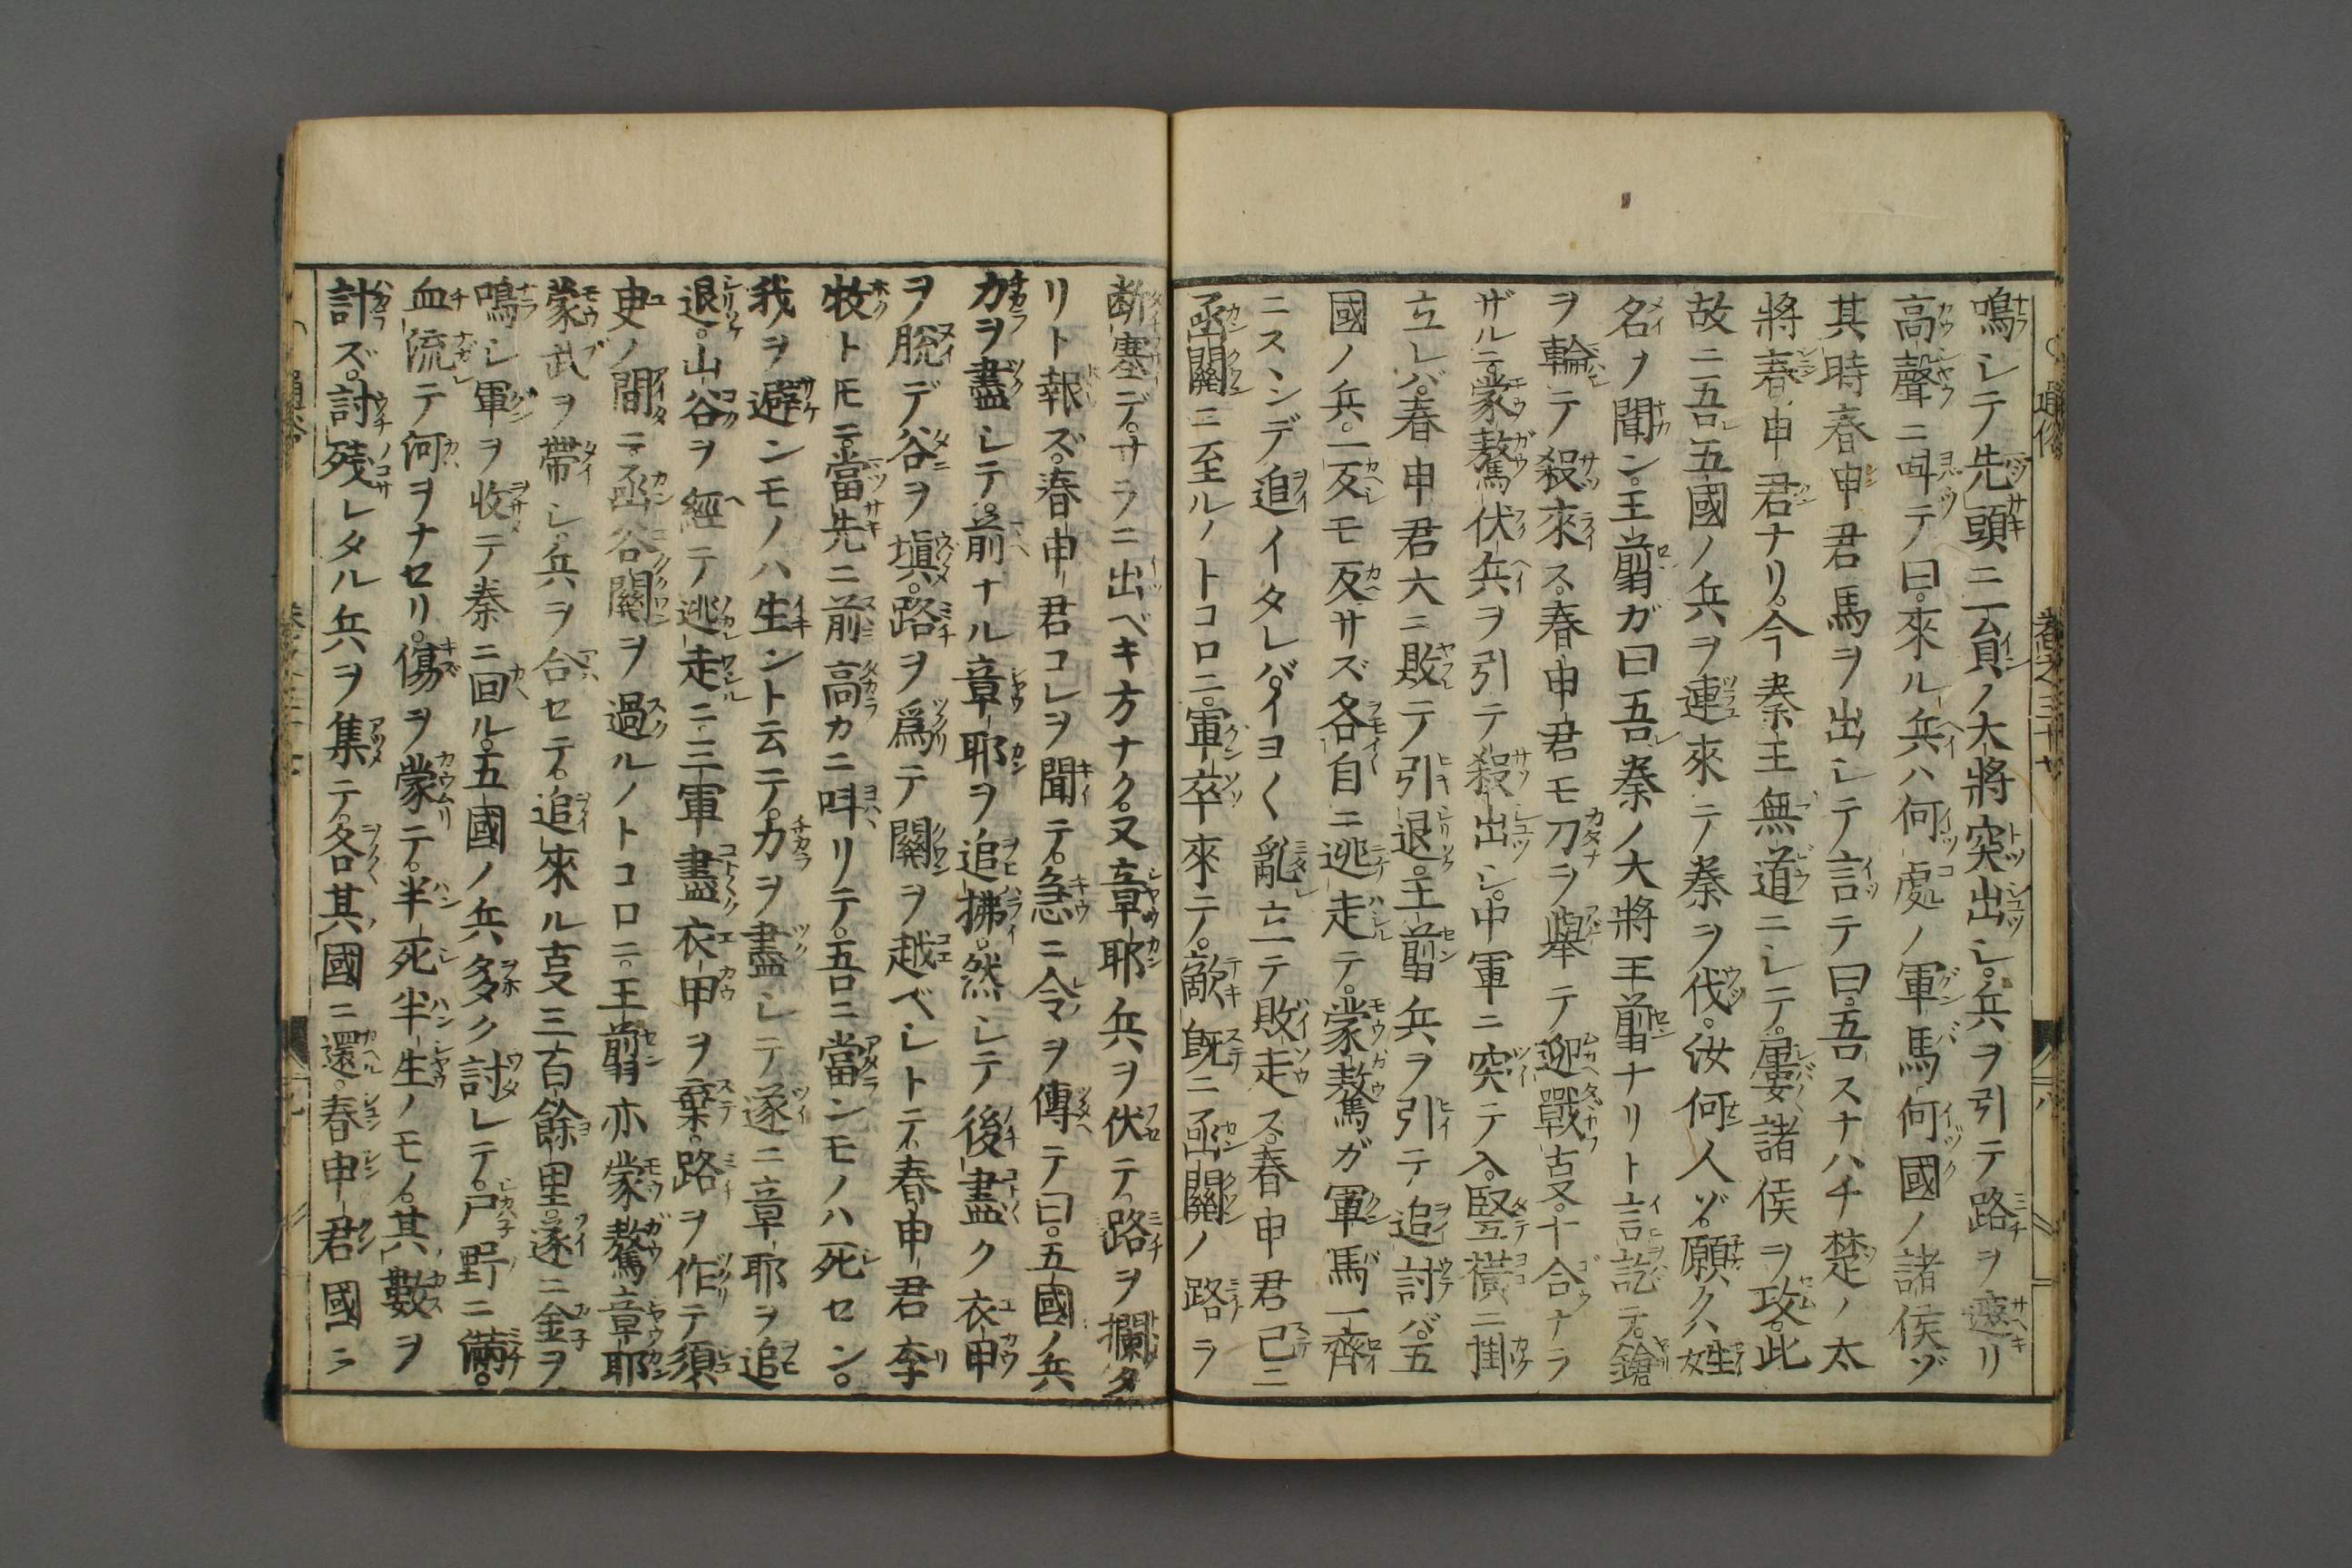 鳴シテ先頭ニ一員ノ大將突出シ。兵ヲ引テ路ヲ遮リ
高聲ニ呌テ曰。來ル兵ハ何處ノ軍馬何國ノ諸侯ゾ
其時春申君馬ヲ出シテ言テ曰。吾スナハチ楚ノ太
將春申君ナリ。今秦王無道ニシテ。屢諸侯ヲ攻。此
故ニ吾五國ノ兵ヲ連來テ秦ヲ伐。汝何人ゾ。願クハ姓
名ヲ聞ン。王翦ガ曰吾秦ノ大將王翦ナリト言訖テ。鎗
ヲ輪テ殺來ス。春申君モ刀ヲ擧テ迎戰ヿ。十合ナラ
ザルニ。蒙驁伏兵ヲ引テ殺出シ。中軍ニ突テ入。竪橫ニ掛
立レバ。春申君大ニ敗テ引退。王翦兵ヲ引テ追討バ。五
國ノ兵。一反モ反サズ各自ニ逃走テ。蒙驁ガ軍馬一齊
ニスヽンデ追イタレバ。イヨ〱亂立テ敗走ス。春申君已ニ
函關ニ至ルノトコロニ。軍卒來テ。敵既ニ函關ノ路ヲ
断塞デ。サラニ出ベキ方ナク。又章耶兵ヲ伏テ。路ヲ攔タ
リト報ズ。春申君コレヲ聞テ。急ニ令ヲ傳テ曰。五國ノ兵
力ヲ盡シテ。前ナル章耶ヲ追拂。然シテ後盡ク衣甲
ヲ脫デ谷ヲ塡。路ヲ爲テ關ヲ越ベシトテ。春申君李
牧トモニ。當先ニ前高カニ呌リテ。吾ニ當ンモノハ死セン。
我ヲ避ンモノハ生ント云テ。力ヲ盡シテ遂ニ章耶ヲ追
退。山谷ヲ經テ逃走ニ。三軍盡衣甲ヲ棄。路ヲ作テ須
臾ノ間ニ。函谷關ヲ過ルノトコロニ。王翦亦蒙驁章耶
蒙武ヲ帶シ。兵ヲ合セテ。追來ルヿ三百餘里。遂ニ金ヲ
鳴シ軍ヲ收テ秦ニ回ル。五國ノ兵多ク討レテ。尸野ニ滿。
血流テ何ヲナセリ。傷ヲ蒙テ。半死半生ノモノ。其數ヲ
計ズ。討殘レタル兵ヲ集テ。各其國ニ還。春申君國ニ